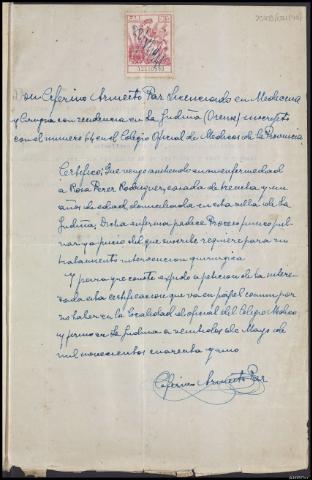 Don Ceferino Armesto Paz Licenciado en Medicina
y Cirugia con residencia en La Gudiña (Orense) inscripto
con el numero 64 en el Colegio Oficial de Medicos de la Provincia
Certifico: Que vengo asistiendo en su enfermedad
a Rosa Perez Rodriguez, casada de treinta y un
años de edad domiciliada en esta villa de La
Gudiña; Dicha enferma padece Proceso
y a juicio del que suscribe requiere para su
tratamiento intervencion quirurgica
Y para que conste expido a peticion de la intere-
sada esta certificacion que va en papel comun por
no haber en la localidad el oficial del Colegio Medico
y firmo en La Gudiña a veintiocho de Mayo de
mil novecientos cuarenta y uno
Ceferino Armesto Paz